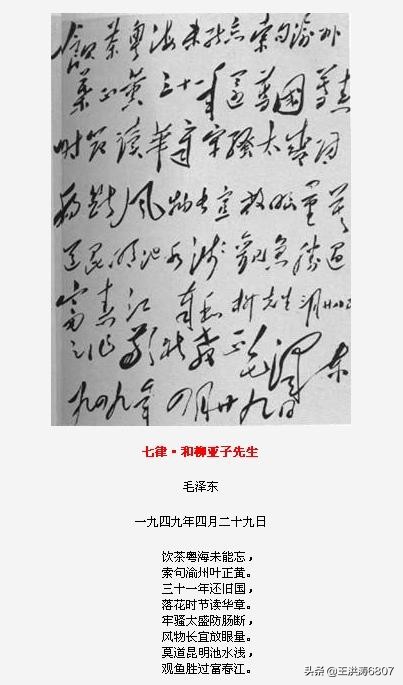 飲茶粤海未能忘索句渝州
葉正黄三十一年還舊國落花
时節讀華章牢騷太盛防
腸斷風物长宜放眼量莫
道昆明池水淺觀魚勝過
富春江 奉和柳先生三月廿八日
之作敬祈教正 毛澤东
一九四九年 四月廿九日
七律·和柳亚子先生
毛泽东
一九四九年四月二十九日
饮茶粤海未能忘，
索句渝州叶正黄。
三十一年还旧国，
落花时节读华章。
牢骚太盛防肠断，
风物长宜放眼量。
莫道昆明池水浅，
观鱼胜过富春江。
头条 @王洪涛6807